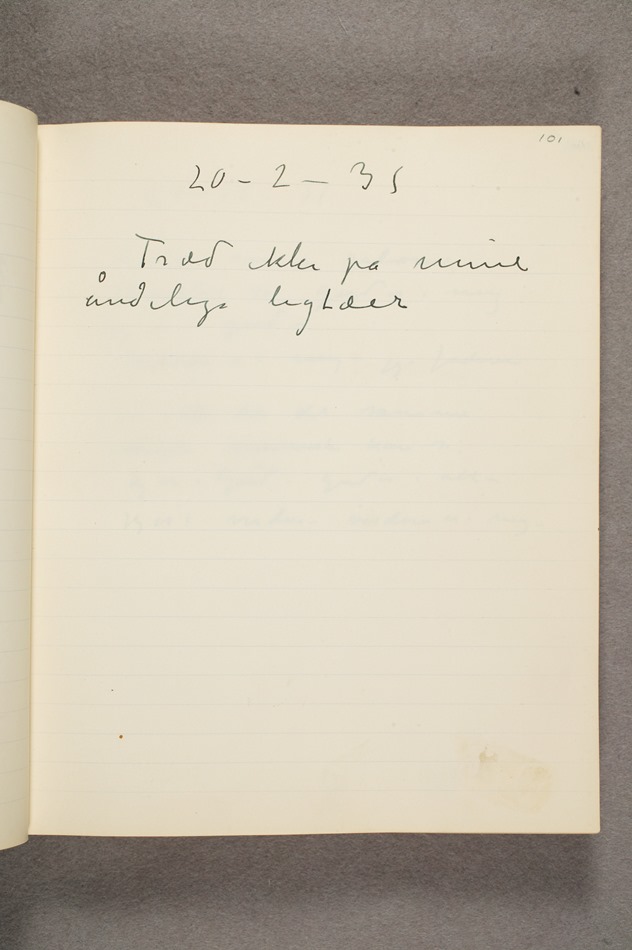 101
20 – 2 – 35
Træd ikke pa mine
åndelige ligtæer